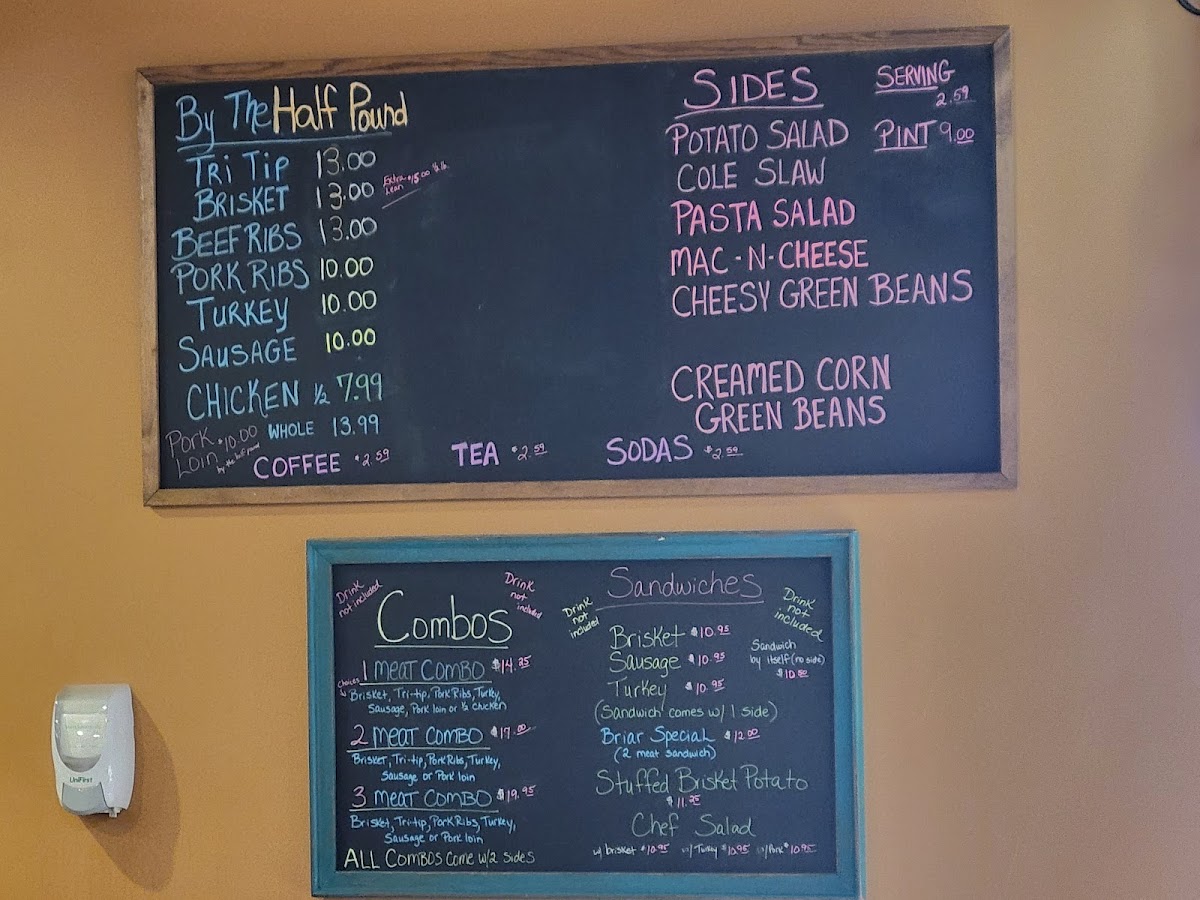 By The Half Pound
TRI TIP 13.00
BRISKET 13.00
Extra Lean $15.00 ½ lb.
BEEF RIBS 13.00
PORK RIBS 10.00
TURKEY 10.00
SAUSAGE 10.00
CHICKEN ½ 7.99
WHOLE 13.99
Pork Loin $10.00
by the half pound
COFFEE $2.59
TEA $2.59
SODAS $2.59
SIDES
SERVING 2.59
PINT 9.00
POTATO SALAD
COLE SLAW
PASTA SALAD
MAC-N-CHEESE
CHEESY GREEN BEANS
CREAMED CORN
GREEN BEANS
Drink
not included
Drink
not
included
Combos
1 MEAT COMBO
Choices
Brisket, Tri-tip, Pork Ribs, Turkey,
Sausage, Pork loin or ½ chicken
2 MEAT COMBO $17.00
Brisket, Tri-tip, Pork Ribs, Turkey,
Sausage or Pork loin
3 MEAT COMBO $19.95
Brisket, Tri-tip, Pork Ribs, Turkey,
Sausage or Pork loin
ALL COMBOS COME W/2 SIDES
Drink
not
included
Sandwiches
Drink
not
included
Brisket $10.95
Sausage $10.95
Turkey $10.95
Sandwich
by itself (no side)
(Sandwich comes w/ 1 side)
Briar Special $12.00
(2 meat sandwich)
Stuffed Brisket Potato
Chef Salad
w/ brisket $10.95 w/ Turkey $10.95 w/ Pork $10.95
UniFirst